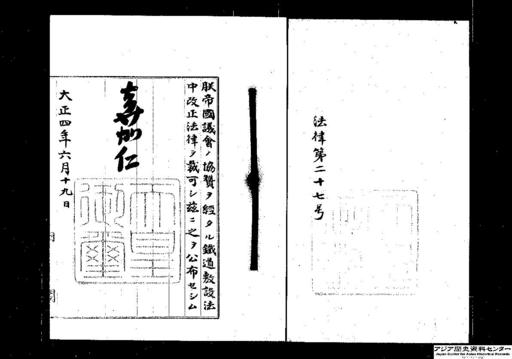 法律第二十七号
朕帝國議會ノ協贊ヲ經タル鐵道敷設法
中改正法律ヲ裁可シ茲ニ之ヲ公布セシム
嘉仁
天皇御璽
大正四年六月十九日
アジア歴史資料センター
Japan Center for Asian Historical Records